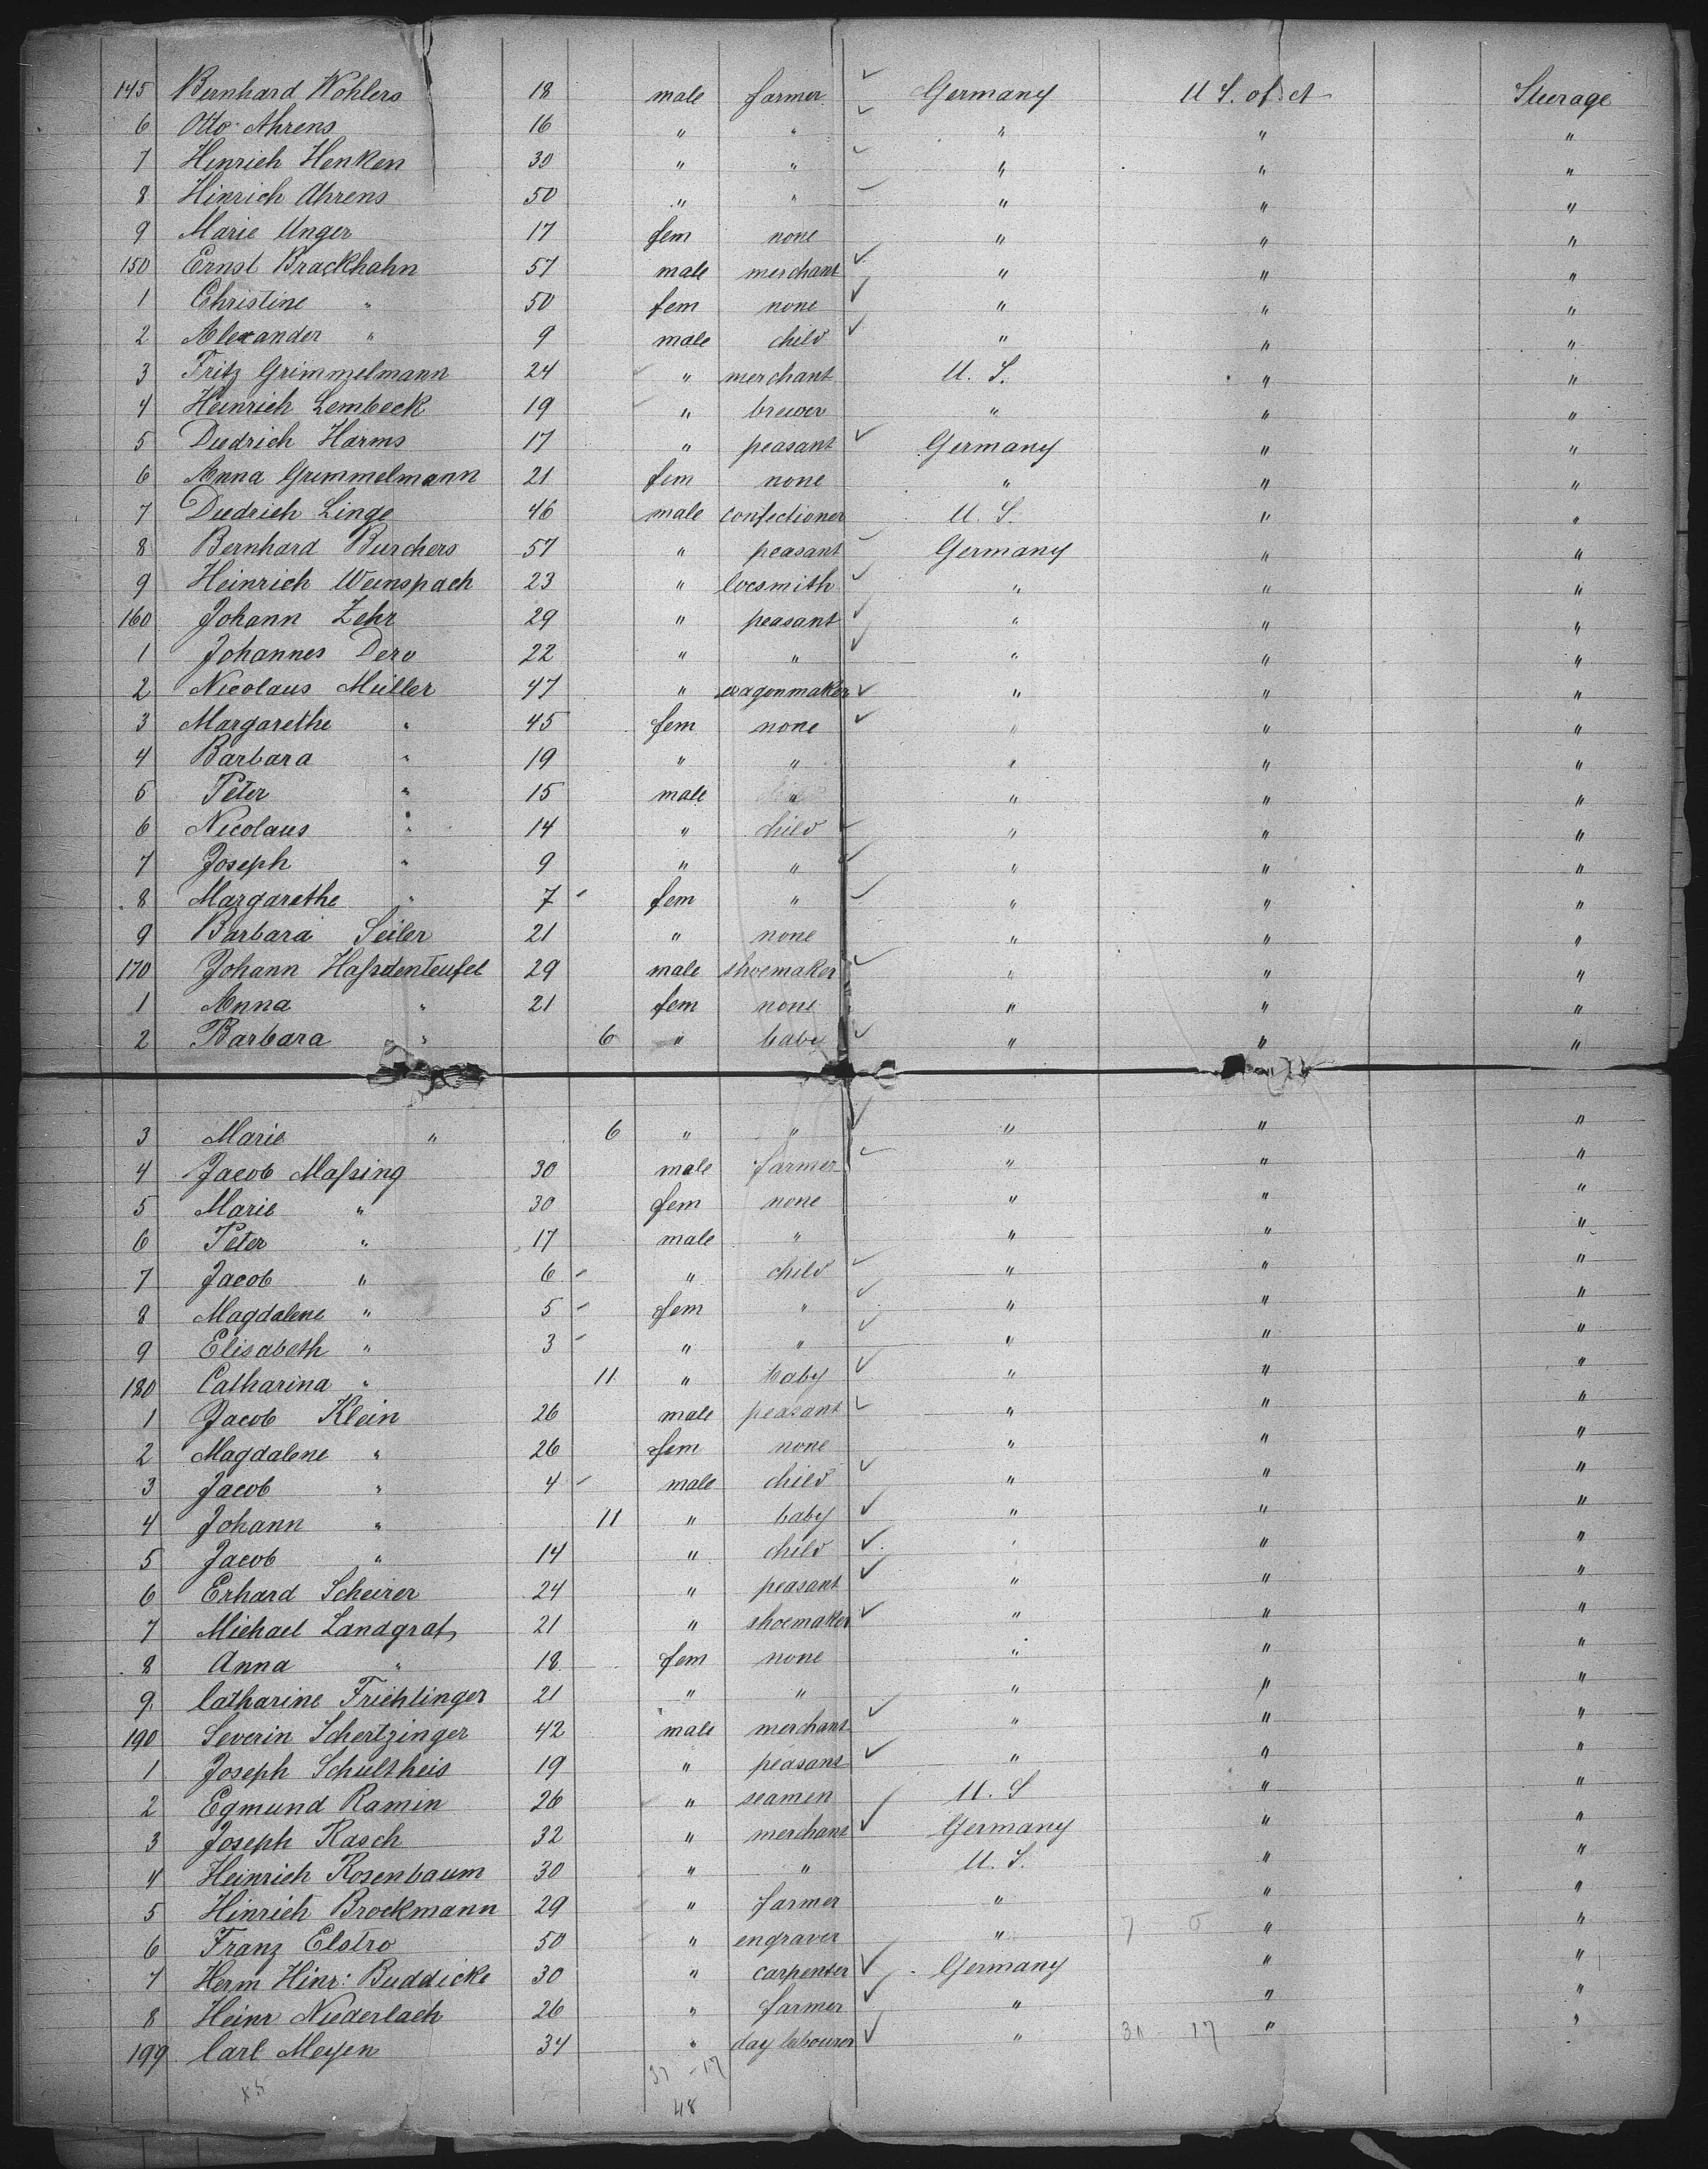 145 Bernhard Wohlers 18 male farmer ✓ Germany U S. of A Steerage
6 Otto Ahrens 16 " " ✓ " " "
7 Hinrich Henken 30 " " ✓ " " "
8 Hinrich Ahrens 50 " " " " "
9 Marie Unger 17 fem none " " "
150 Ernst Brackhahn 57 male merchant ✓ " " "
1 Christine " 50 fem none ✓ " " "
2 Alexander " 9 male child ✓ " " "
3 Fritz Grimmelmann 24 " merchant U. S. " "
4 Heinrich Lembeck 19 " brewer " " "
5 Diedrich Harms 17 " peasant ✓ Germany " "
6 Anna Grimmelmann 21 fem none " " "
7 Diedrich Linge 46 male confectioner U. S. " "
8 Bernhard Burchers 57 " peasant Germany " "
9 Heinrich Weinspach 23 " locsmith ✓ " " "
160 Johann Zehr 29 " peasant ✓ " " "
1 Johannes Dero 22 " " ✓ " " "
2 Nicolaus Müller 47 " wagonmaker ✓ " " "
3 Margarethe " 45 fem none ✓ " " "
4 Barbara " 19 " " " " "
5 Peter " 15 male " " " "
6 Nicolaus " 14 " child ✓ " " "
7 Joseph " 9 " " ✓ " " "
8 Margarethe " 7 fem " ✓ " " "
9 Barbara Seiler 21 " none " " "
170 Johann Haßdenteufel 29 male shoemaker ✓ " " "
1 Anna " 21 fem none " " "
2 Barbara " 6 " baby ✓ " " "
3 Marie " 6 " " ✓ " " "
4 Jacob Maßing 30 male farmer ✓ " " "
5 Marie " 30 fem none " " "
6 Peter " 17 male " " " "
7 Jacob " 6 " child ✓ " " "
8 Magdalene " 5 fem " ✓ " " "
9 Elisabeth " 3 " " ✓ " " "
180 Catharina " 11 " baby ✓ " " "
1 Jacob Klein 26 male peasant ✓ " " "
2 Magdalene " 26 fem none " " "
3 Jacob " 4 male child ✓ " " "
4 Johann " 11 " baby ✓ " " "
5 Jacob " 14 " child ✓ " " "
6 Erhard Scheirer 24 " peasant ✓ " " "
7 Michael Landgraf 21 " shoemaker ✓ " " "
8 Anna " 18 fem none " " "
9 Catharine Friehlinger 21 " " " " "
190 Severin Schertzinger 42 male merchant ✓ " " "
1 Joseph Schultheis 19 " peasant ✓ " " "
2 Egmund Ramin 26 " seamen U. S " "
3 Joseph Rasch 32 " merchant ✓ Germany " "
4 Heinrich Rosenbaum 30 " " U. S. " "
5 Hinrich Brockmann 29 " farmer " " "
6 Franz Elstro 50 " engraver " " "
7 Herm Hinr: Buddicke 30 " carpenter ✓ Germany " "
8 Heinr Niederlach 26 " farmer ✓ " " "
199 Carl Meyen 34 " day labourer ✓ " " "
48